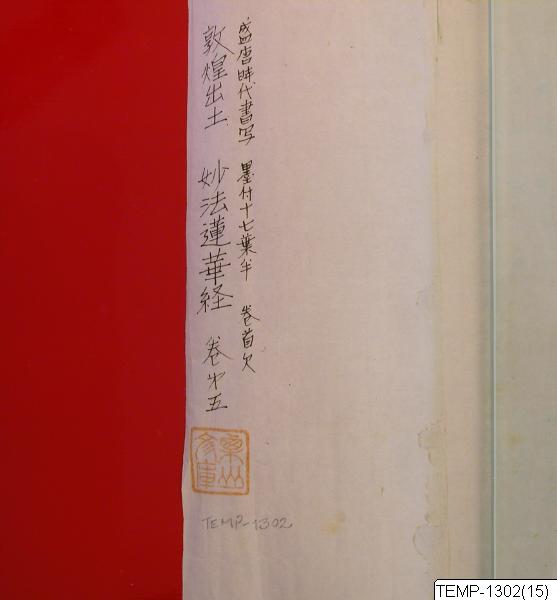 盛唐時代書写 墨付十七葉半 巻首欠
敦煌出土 妙法蓮華経 巻第五
TEMP-1302
TEMP-1302(15)